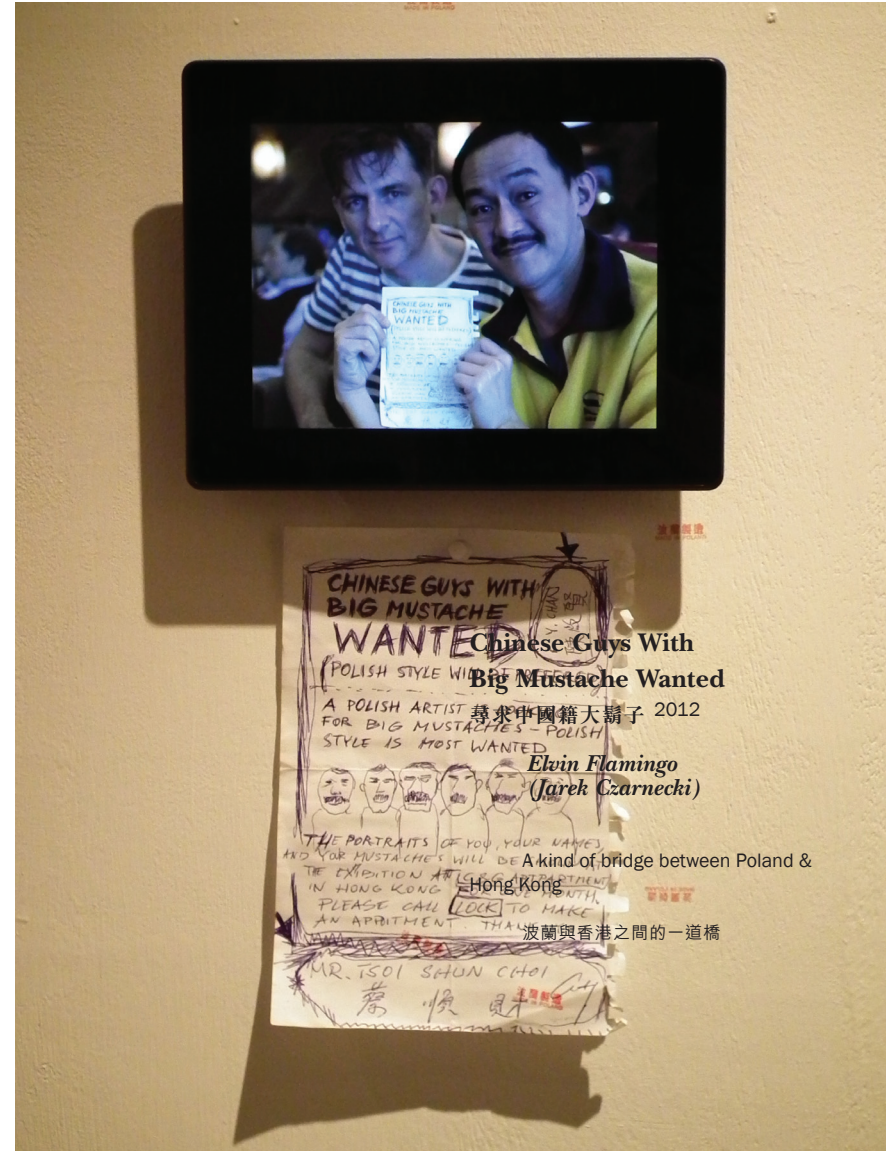 MADE IN POLAND
CHINESE GUYS WITH
BIG MUSTACHE
WANTED
CHINESE GUYS WITH
BIG MUSTACHE
WANTED
Y. CHAN
(POLISH STYLE WILL BE
A POLISH ARTIST
FOR BIG MUSTACHES - POLISH
STYLE IS MOST WANTED
THE PORTRAITS OF YOU, YOUR NAMES
AND YOR MUSTACHES WILL BE
THE EXIBITION
IN HONG KONG FOR ONE MONTH.
PLEASE CALL LOCK TO MAKE
AN APPOITMENT. THAN
MR. TSOI SHUN CHOI
蔡 順 財
波蘭製造
MADE IN POLAND
Chinese Guys With
Big Mustache Wanted
尋求中國籍大鬍子 2012
Elvin Flamingo
(Jarek Czarnecki)
A kind of bridge between Poland &
Hong Kong
波蘭與香港之間的一道橋